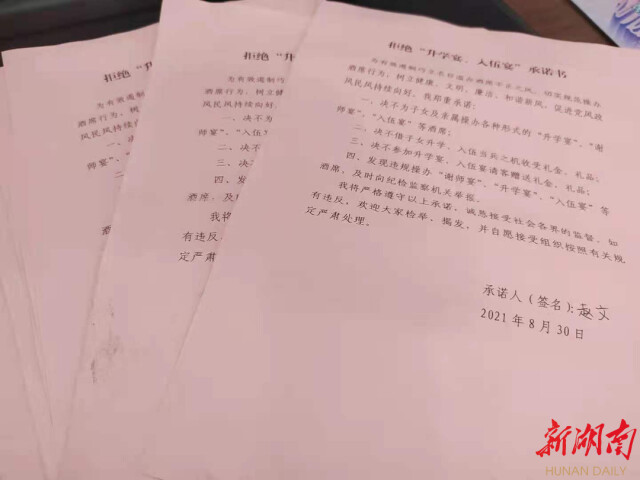 拒绝“升学宴、入伍宴”承诺书
为有效遏制
酒席行为，树立健康、文明、廉洁、和谐新风，促进党风政
风民风持续向好，我郑重承诺：
一、决不为子女及亲属操办各种形式的“升学宴”、“谢
师宴”、“入伍宴”等酒席；
二、决不借子女升学、入伍当兵之机收受礼金、礼品；
三、决不参加升学宴、入伍宴请客赠送礼金、礼品；
四、发现违规操办“谢师宴”、“升学宴”、“入伍宴”等
酒席，及时向纪检监察机关举报。
我将严格遵守以上承诺，诚恳接受社会各界的监督，如
有违反，欢迎大家检举、揭发，并自愿接受组织按照有关规
定严肃处理。
承诺人（签名）：赵文
2021年8月30日
拒绝“升学
为有效遏制
酒席行为，树立健
风民风持续向好，
一、决不为
师宴”、“入伍
二、决不
三、决
四、发
酒席，及
我将
有违反
定严肃
拒绝“升
为有效遏制
酒席行为，树立
风民风持续向
一、决不
师宴”、“入
二、
新湖南
HUNAN DAILY